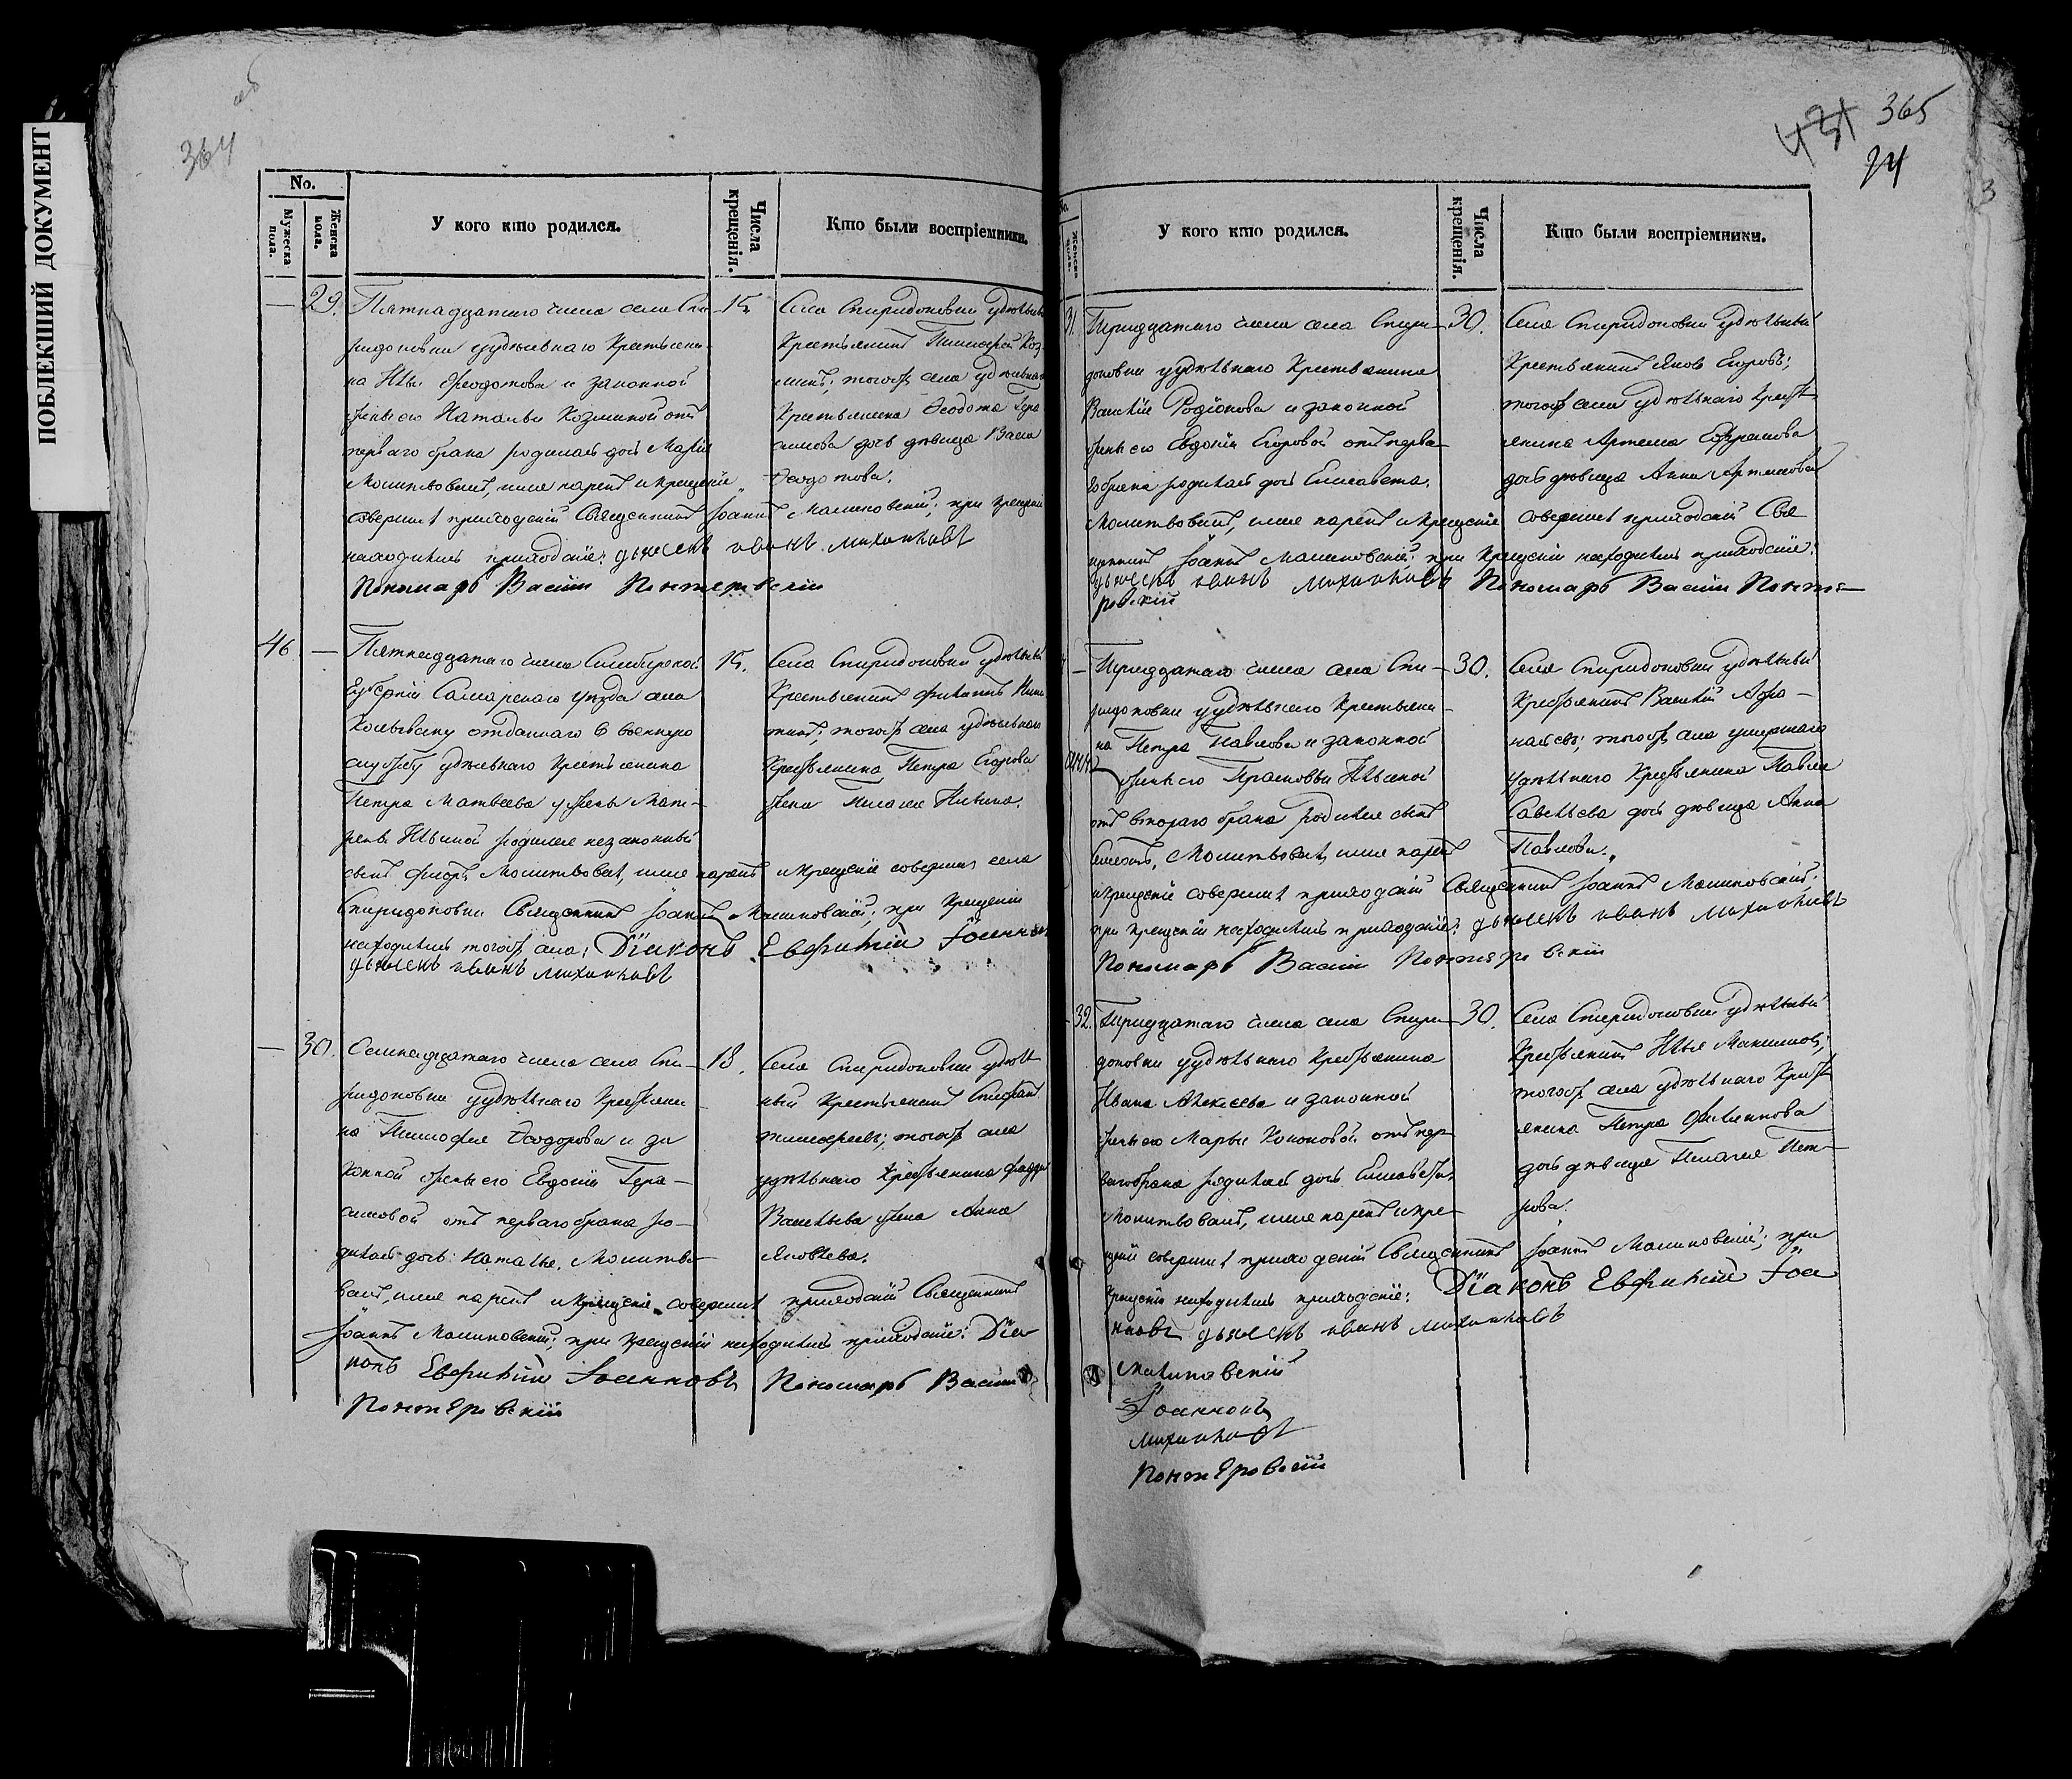 ПОБЛЕКШИЙ ДОКУМЕНТ
364
No.
Мужеска пола.
Женска пола.
У кого кто родился.
Числа крещенія.
Кто были воспріемники.
29.
Пятнадцатаго числа села Спи-
ридоновки удѣльнаго Крестьяни-
на Ильи Ѳеодотова и законной
жены его Натальи Козминой отъ
перваго брака родилась дочь Марія
Молитвовалъ, имя нарекъ и крещеніе
совершилъ приходскій Священникъ Іоаннъ Малиновскій; при крещеніи
находились приходскіе: дьячекъ иванъ михайловъ
Пономарь Василій Понтеровскій
15.
Села Спиридоновки удѣльный
Крестьянинъ Тимофей Коз-
минъ; тогожъ села удѣльнаго
Крестьянина Ѳеодота Гера-
симова дочь дѣвица Васса
Ѳеодотова.
46
Пятнадцатаго числа Симбирской
Губерніи Самарскаго уѣзда села
Колывану отданнаго в военную
службу удѣльнаго Крестьянина
Петра Матвеева у жены Мат-
рены Ильиной родился незаконный
сынъ Молитвовалъ, имя нарекъ и крещеніе совершилъ села
Спиридоновки Священникъ Іоаннъ Малиновскій; при крещеніи
находились тогожъ села: Діаконъ Евфимій Іоанновъ
дьячекъ иванъ михайловъ
15.
Села Спиридоновки удѣльный
Крестьянинъ
тогожъ села удѣльнаго
Крестьянина Петра Егорова
жена Пелагея
30.
Семнадцатаго числа села Спи-
ридоновки удѣльнаго Крестьяни-
на Тимофея Ѳеодорова и за
конной жены его Евдокіи Гера-
симовой отъ перваго брака ро-
дилась дочь Наталья. Молитво-
валъ, имя нарекъ и крещеніе совершилъ приходскій Священникъ
Іоаннъ Малиновскій; при крещеніи находились приходскіе: Діа-
конъ Евфимій Іоанновъ Пономарь Василій
Понтеровскій
18.
Села Спиридоновки удѣль
ный Крестьянинъ Стефанъ
Тимофеевъ; тогожъ села
удѣльнаго Крестьянина
Васильева жена Анна
Яковлева.
365
24
У кого кто родился.
Числа крещенія.
Кто были воспріемники.
31.
Тридцатаго числа села Спири-
доновки удѣльнаго Крестьянина
Василія Родіонова и законной
жены его Евдокіи Егоровой отъ перва-
го брака родилась дочь Елисавета.
Молитвовалъ, имя нарекъ и крещеніе совершилъ приходскій Свя
щенникъ Іоаннъ Малиновскій; при крещеніи находились приходскіе:
дьячекъ иванъ михайловъ Пономарь Василій Понте-
ровскій
30.
Села Спиридоновки удѣльный
Крестьянинъ Яковъ Егоровъ;
тогожъ села удѣльнаго Крест-
янина Артема Ефремова
дочь дѣвица Анна Артемова
Тридцатаго числа села Спи-
ридоновки удѣльнаго Крестьяни-
на Петра Павлова и законной
жены его Прасковьи Ильиной
отъ втораго брака родился сынъ
Молитвовалъ, имя нарекъ
и крещеніе совершилъ приходскій Священникъ Іоаннъ Малиновскій;
при крещеніи находились приходскіе: дьячекъ иванъ михайловъ
Пономарь Василій Понтеровскій
30.
Села Спиридоновки удѣльный
Крестьянинъ Василій Афо-
насьевъ; тогожъ села умершаго
удѣльнаго Крестьянина Павла
Савельева дочь дѣвица Анна
Павлова.
32.
Тридцатаго числа села Спири-
доновки удѣльнаго Крестьянина
Ивана Алексеева и законной
жены его Марьи Кононовой отъ пер-
ваго брака родилась дочь Елисавета.
Молитвовалъ, имя нарекъ и кре-
щеніе совершилъ приходскій Священникъ Іоаннъ Малиновскій; при
крещеніи находились приходскіе: Діаконъ Евфимій Іоа
нновъ дьячекъ иванъ михайловъ
30.
Села Спиридоновки удѣльный
Крестьянинъ Илья Максимовъ;
тогожъ села удѣльнаго Крестя
янина Петра Филиппова
дочь дѣвица Пелагея Пет-
рова.
Малиновскій
Іоанновъ
михайловъ
Понтеровскій